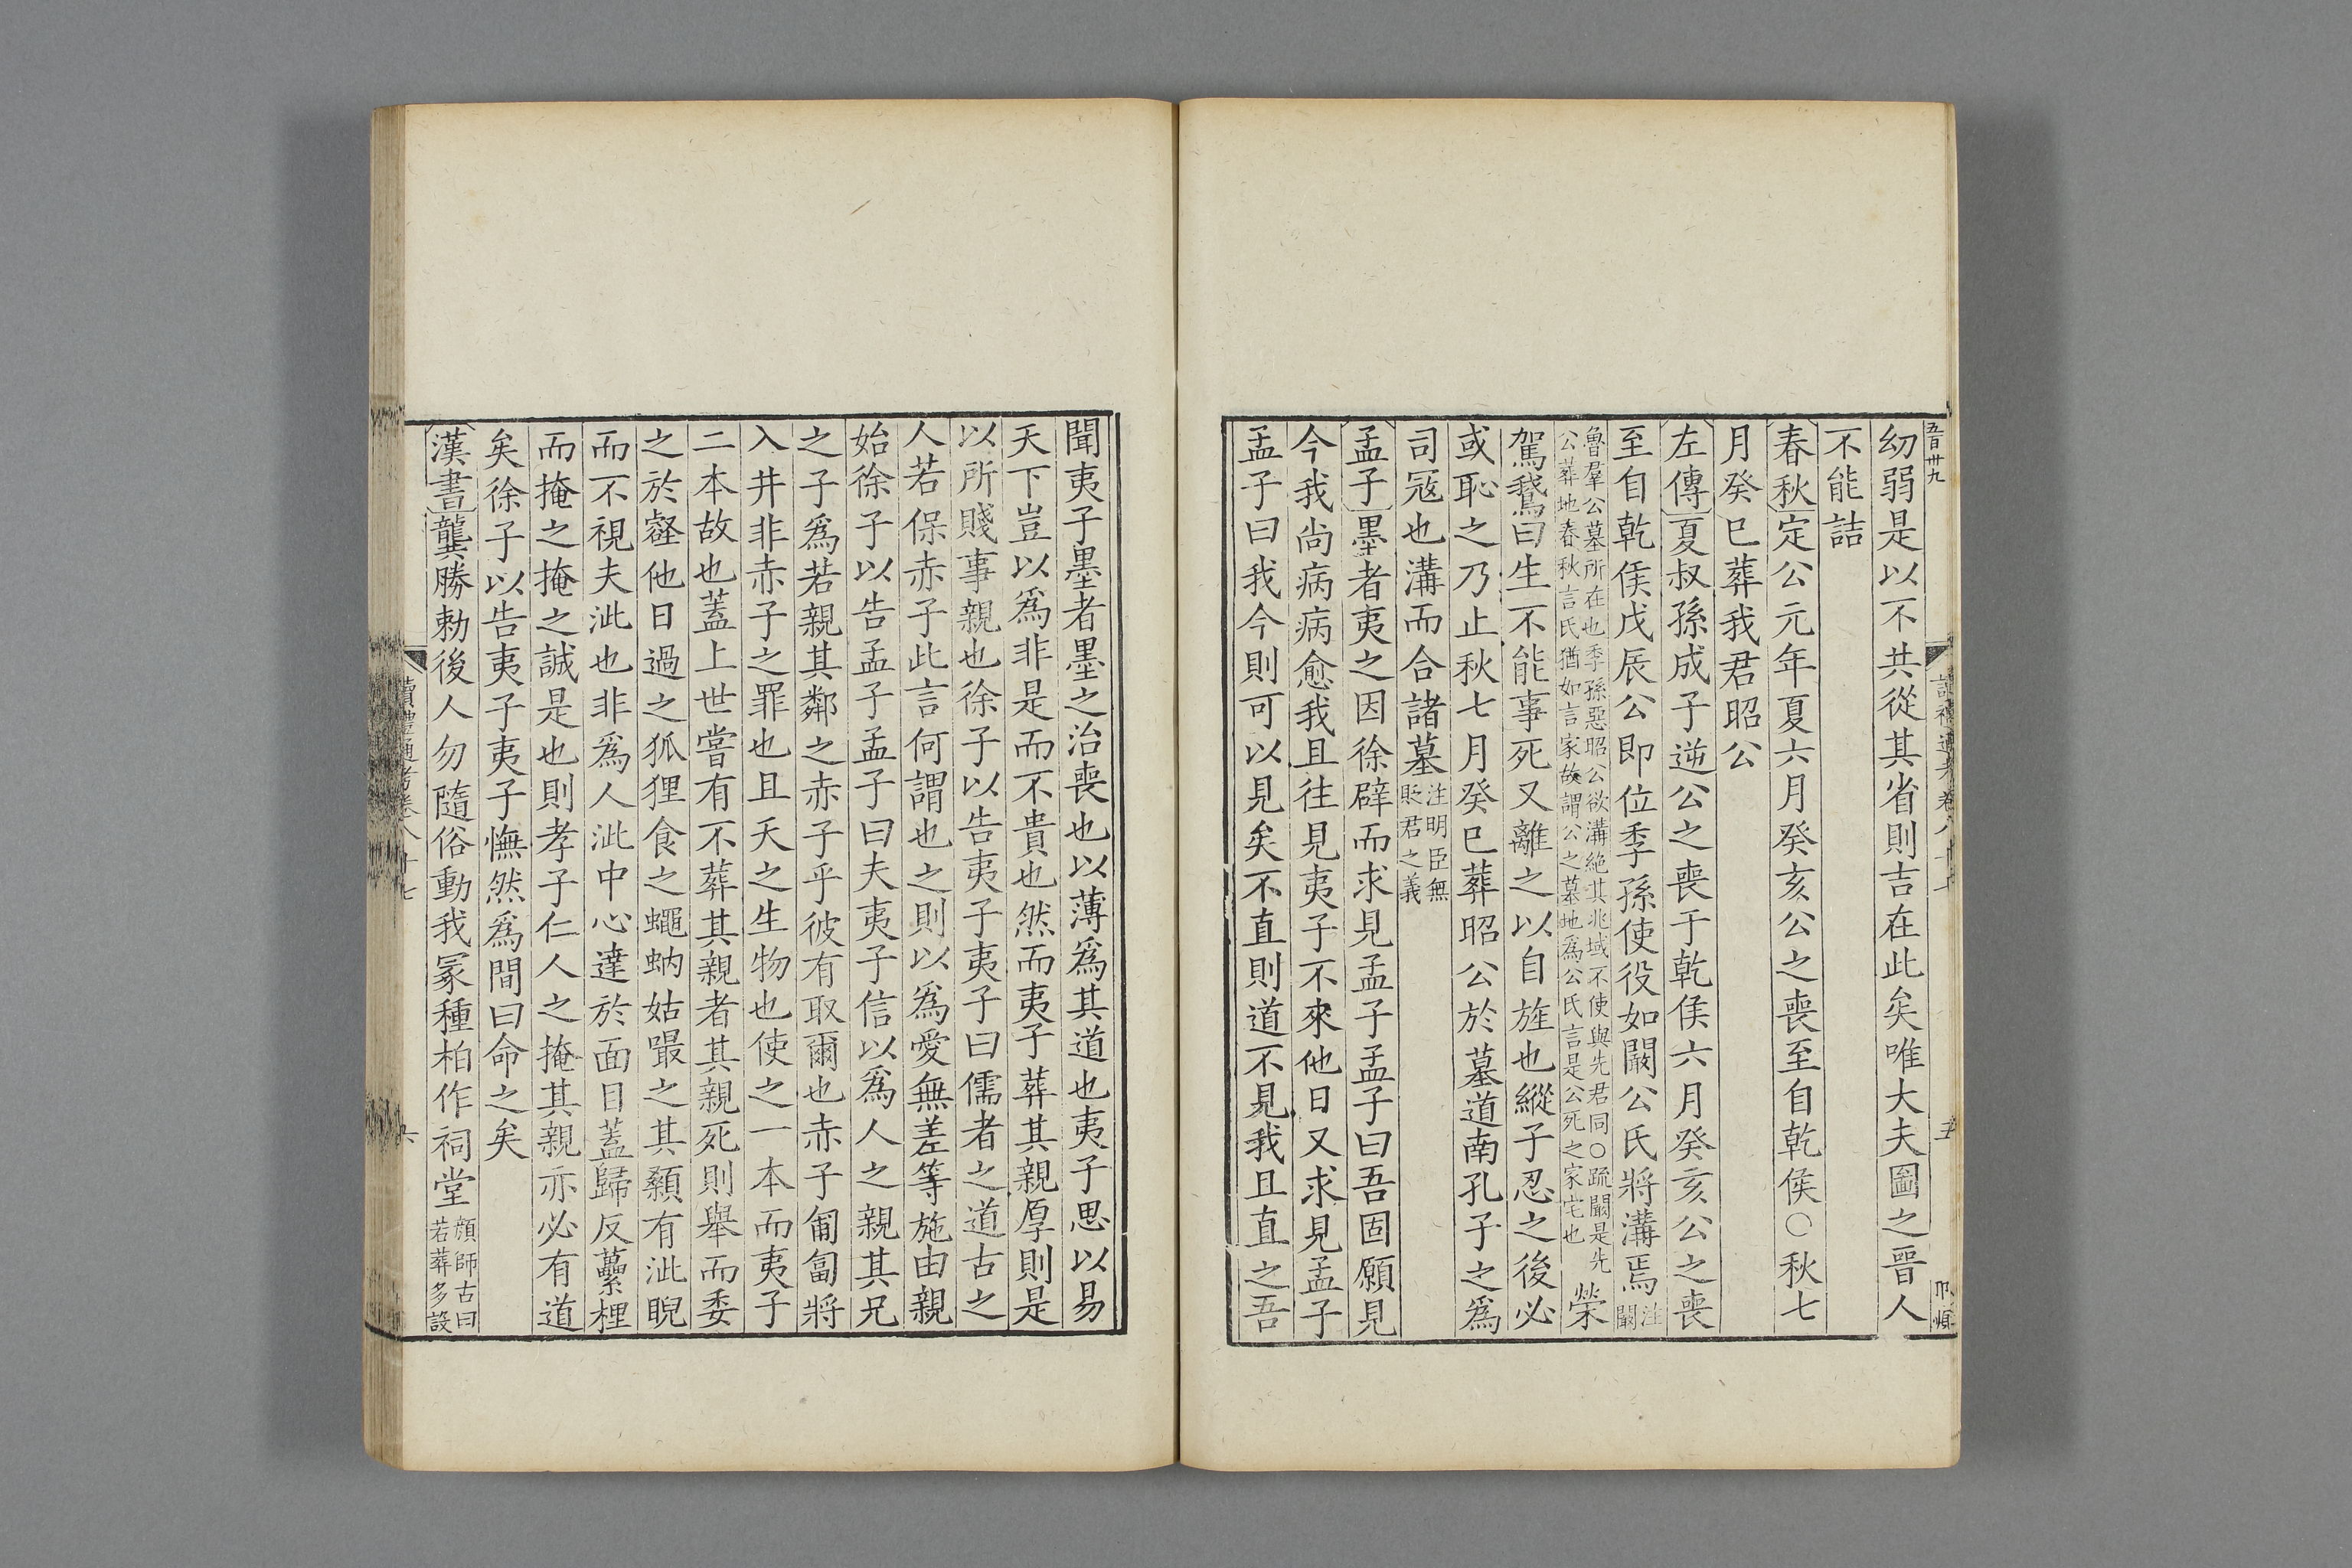 五百卅九
幼弱是以不共從其省則吉在此矣唯大夫圖之晉人
不能詰
春秋定公元年夏六月癸亥公之喪至自乾侯○秋七
月癸巳葬我君昭公
左傳夏叔孫成子逆公之喪于乾侯六月癸亥公之喪
至自乾侯戊辰公即位季孫使役如闞公氏將溝焉注闞
魯羣公墓所在也季孫惡昭公欲溝絶其兆域不使與先君同○疏闞是先
公葬地春秋言氏猶如言家故謂公之墓地爲公氏言是公死之家宅也
榮
駕鵞曰生不能事死又離之以自旌也縱子忍之後必
或恥之乃止秋七月癸巳葬昭公於墓道南孔子之爲
司寇也溝而合諸墓注明臣無貶君之義
孟子墨者夷之因徐辟而求見孟子孟子曰吾固願見
今我尚病病愈我且往見夷子不來他日又求見孟子
孟子曰我今則可以見矣不直則道不見我且直之吾
聞夷子墨者墨之治喪也以薄爲其道也夷子思以易
天下豈以爲非是而不貴也然而夷子葬其親厚則是
以所賤事親也徐子以告夷子夷子曰儒者之道古之
人若保赤子此言何謂也之則以爲愛無差等施由親
始徐子以告孟子孟子曰夫夷子信以爲人之親其兄
之子爲若親其鄰之赤子乎彼有取爾也赤子匍匐將
入井非赤子之罪也且天之生物也使之一本而夷子
二本故也蓋上世嘗有不葬其親者其親死則舉而委
之於壑他日過之狐狸食之蠅蚋姑嘬之其顙有泚睨
而不視夫泚也非爲人泚中心達於面目蓋歸反虆梩
而掩之掩之誠是也則孝子仁人之掩其親亦必有道
矣徐子以告夷子夷子憮然爲間曰命之矣
漢書龔勝勅後人勿隨俗動我冢種柏作祠堂顔師古曰若葬多設
讀禮通考卷八十七
六